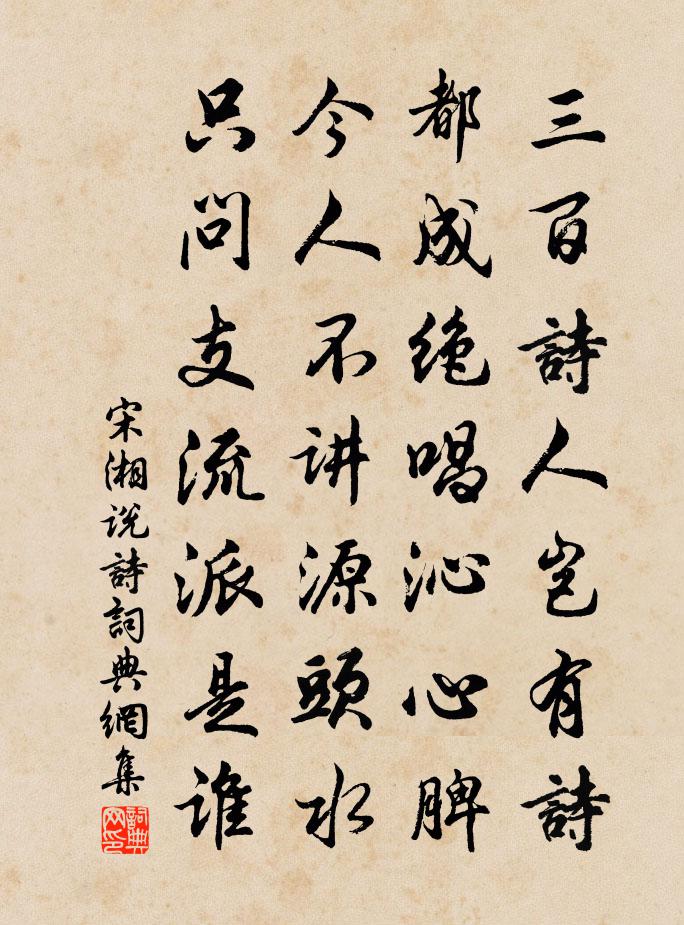 三百詩人岂有詩
都成绝唱沁心脾
今人不讲源頭水
只问支流派是谁
宋湘说詩詞典網集
詞典网印